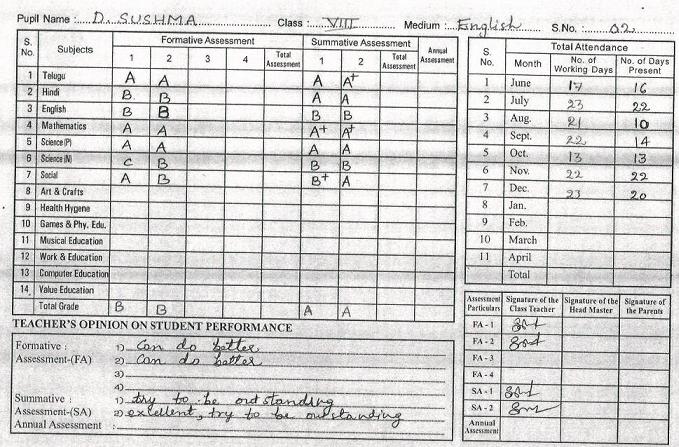 Pupil Name : D. SUSHMA Class : VIII Medium : English S.No. : 02
S. No. Subjects Formative Assessment Summative Assessment Annual Assessment
1 2 3 4 Total Assessment 1 2 Total Assessment
1 Telugu A A A A+
2 Hindi B B A A
3 English B B B B
4 Mathematics A A A+ A+
5 Science (P) A A A A
6 Science (N) C B B B
7 Social A B B+ A
8 Art & Crafts
9 Health Hygene
10 Games & Phy. Edu.
11 Musical Education
12 Work & Education
13 Computer Education
14 Value Education
Total Grade B B A A
TEACHER'S OPINION ON STUDENT PERFORMANCE
Formative : 1) Can do better
Assessment-(FA) 2) Can do better
3)
4)
Summative : 1) try to be outstanding
Assessment-(SA) 2) excellent, try to be outstanding
Annual Assessment :
S. No. Month Total Attendance
No. of Working Days No. of Days Present
1 June 17 16
2 July 23 22
3 Aug. 21 10
4 Sept. 22 14
5 Oct. 13 13
6 Nov. 22 22
7 Dec. 23 20
8 Jan.
9 Feb.
10 March
11 April
Total
Assessment Particulars Signature of the Class Teacher Signature of the Head Master Signature of the Parents
FA - 1
FA - 2
FA - 3
FA - 4
SA - 1
SA - 2
Annual Assessment